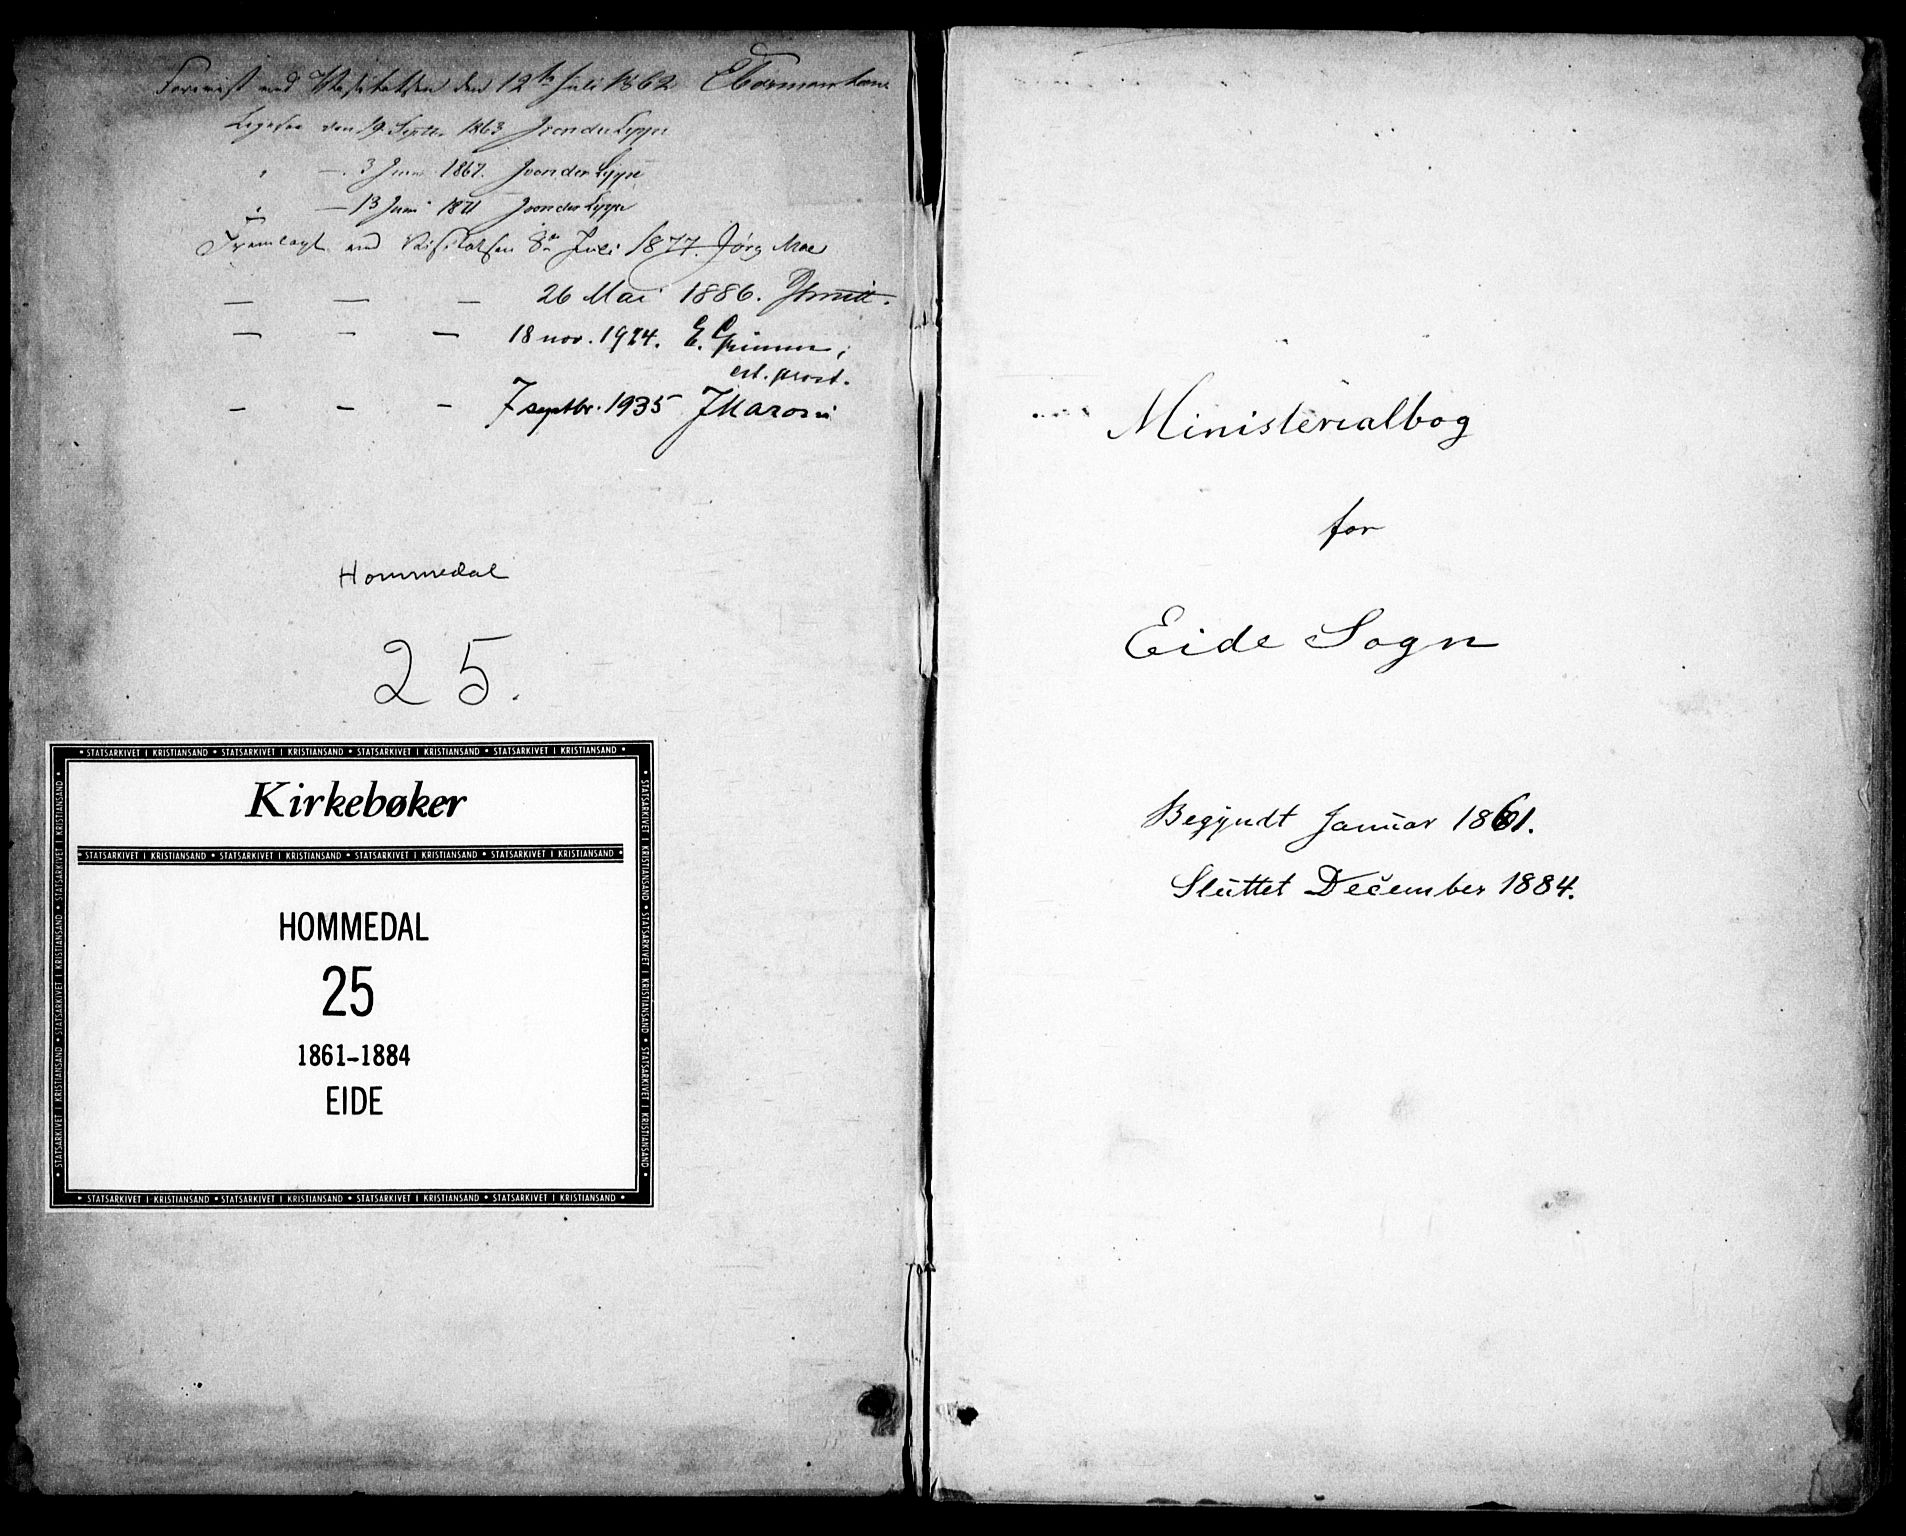 Forevist ved Visitatsen den 12te Juli 1862
Ligesaa den 19 Septbr 1863 JvonderLippe
" — 3 Juni 1867. JvonderLippe
" — 13 Juni 1871 JvonderLippe
Fremlagt ved Visitatsen 8de Juli 1877. Jørg Moe
— — — 26 Mai 1886.
— — — 18 nov. 1924. E.
— — — 7 septbr. 1935 JMaroni
Hommedal
25.
• STATSARKIVET I KRISTIANSAND • STATSARKIVET I KRISTIANSAND • STATSARKIVET I KRISTIANSAND • STATSARKIVET I KRISTIANSAND •
Kirkebøker
• STATSARKIVET I KRISTIANSAND • STATSARKIVET I KRISTIANSAND • STATSARKIVET I KRISTIANSAND • STATSARKIVET I KRISTIANSAND •
HOMMEDAL
25
1861-1884
EIDE
• STATSARKIVET I KRISTIANSAND • STATSARKIVET I KRISTIANSAND • STATSARKIVET I KRISTIANSAND • STATSARKIVET I KRISTIANSAND •
Ministerialbog
for
Eide Sogn
Begyndt Januar 1861.
Sluttet December 1884.